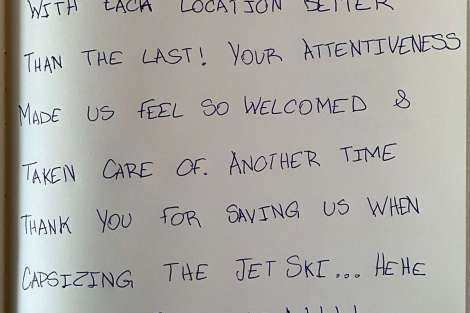 WITH EACH LOCATION BETTER
THAN THE LAST! YOUR ATTENTIVENESS
MADE US FEEL SO WELCOMED &
TAKEN CARE OF. ANOTHER TIME
THANK YOU FOR SAVING US WHEN
CAPSIZING THE JET SKI... HEHE